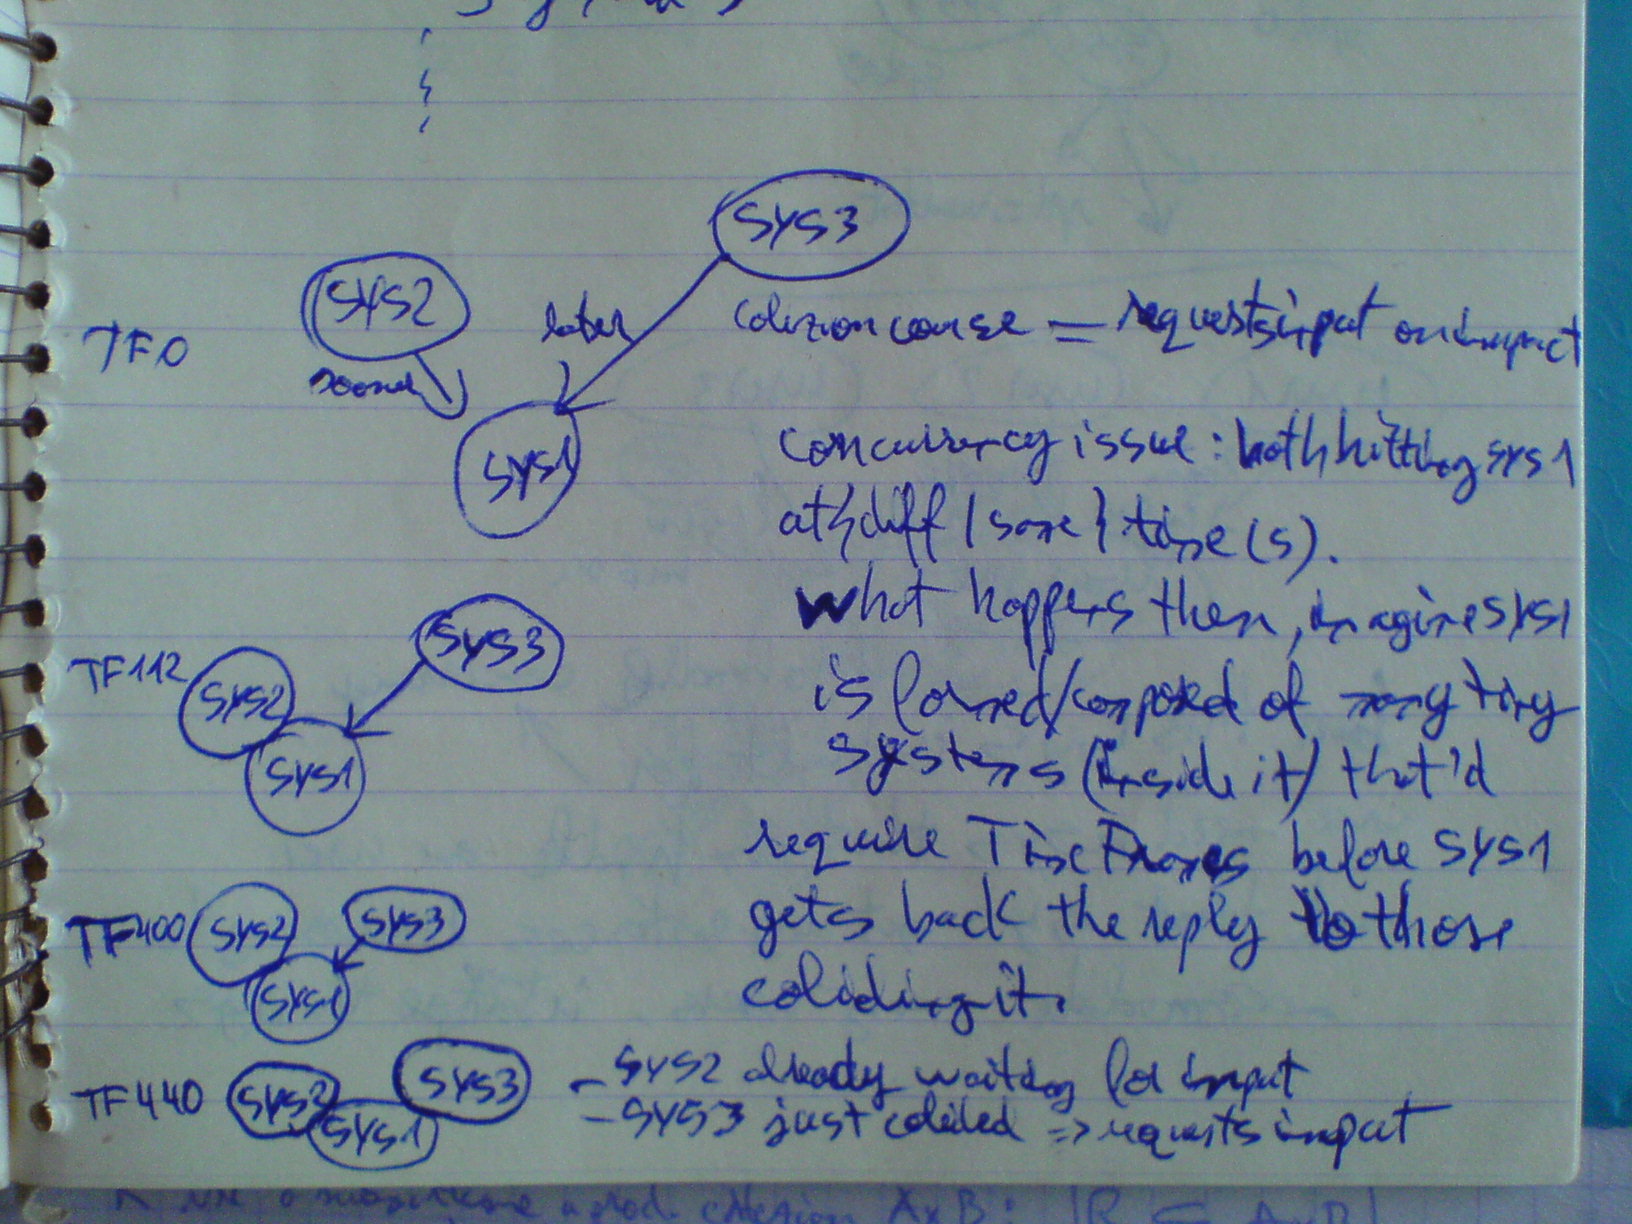 SYS3
SYS2
later
colizion course = requests input on impact
TF0
sooner
SYS1
concurrency issue : both hitting sys1
at {diff | same} time(s).
what happens then, imagine SYS1
is formed/composed of many tiny
systems (inside it) that'd
require Time Frames before SYS1
gets back the reply to those
coliding it.
TF112
SYS3
SYS2
SYS1
TF400
SYS2
SYS3
SYS1
TF440
SYS2
SYS3
SYS1
- SYS2 already waiting for input
- SYS3 just colided => requests input